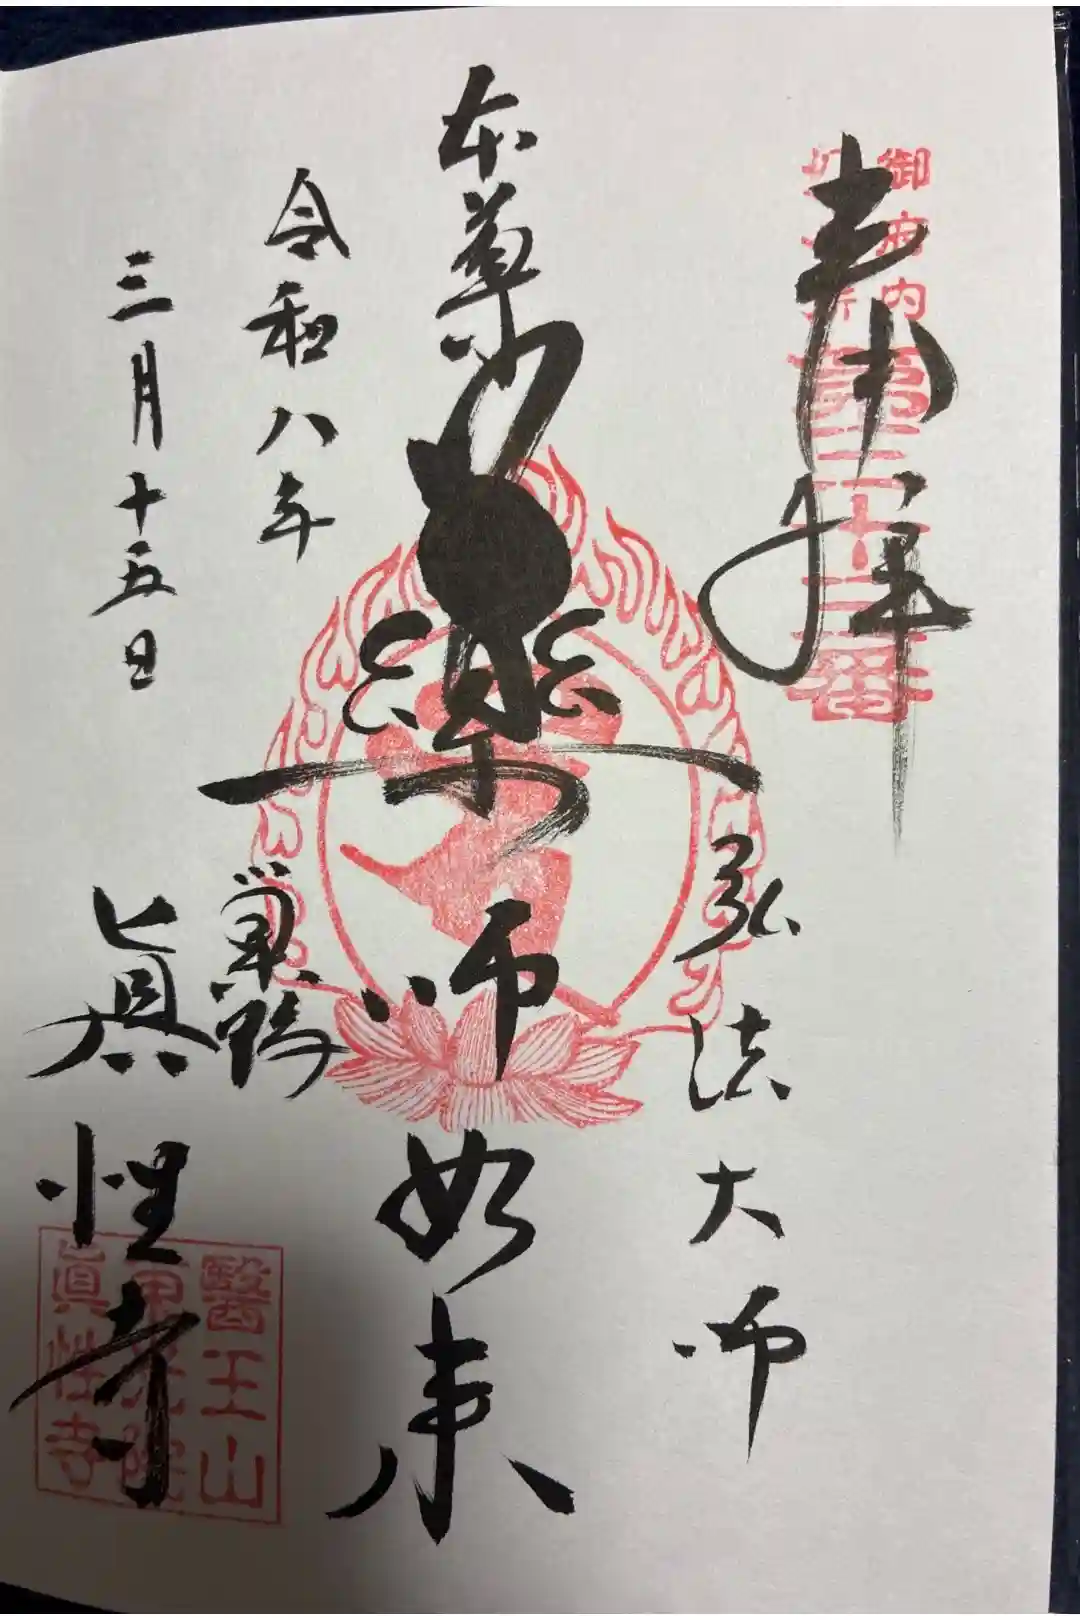 奉拝
御府内
第三十三番
弘法大師
本尊
薬師如来
令和八年
三月十五日
巣鴨
眞性寺
醫王山
眞性寺